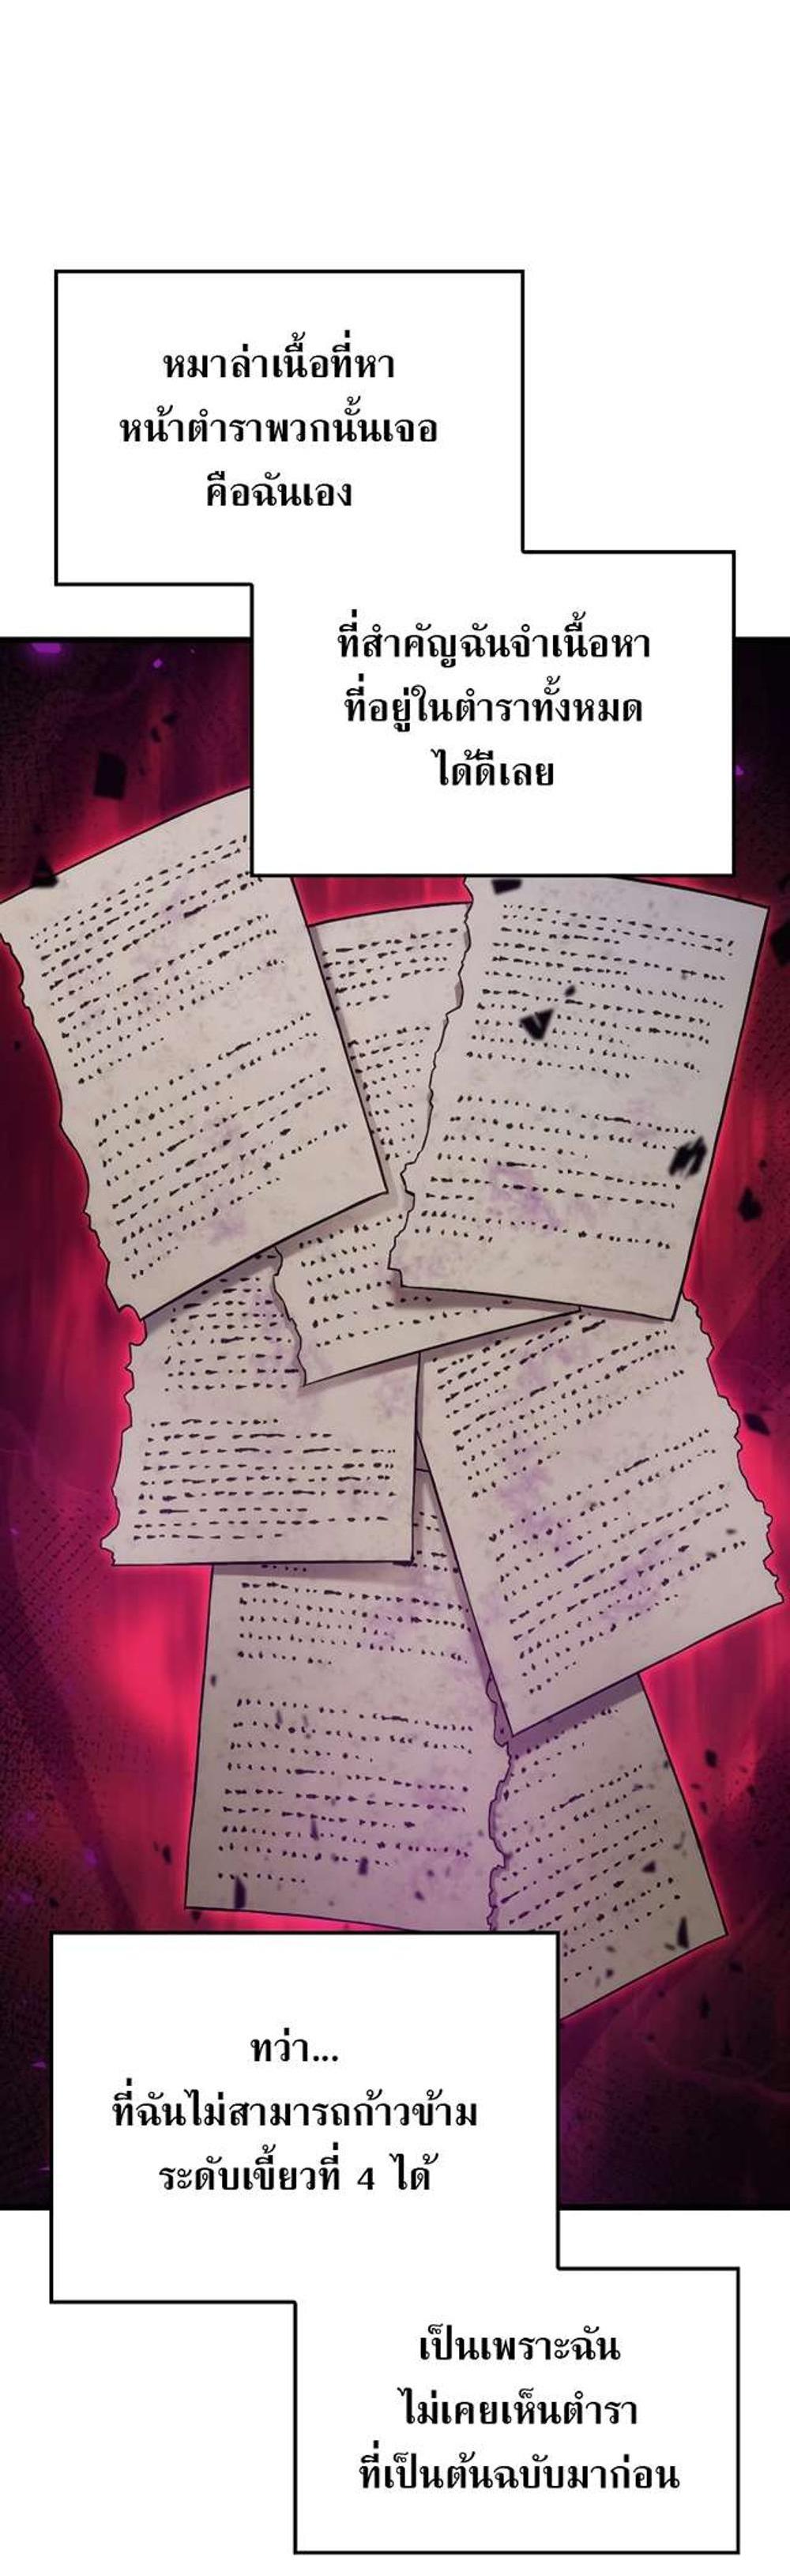 หมาล่าเนื้อที่หา
หน้าตำราพวกนั้นเจอ
คือฉันเอง
ที่สำคัญฉันจำเนื้อหา
ที่อยู่ในตำราทั้งหมด
ได้ดีเลย
ทว่า...
ที่ฉันไม่สามารถก้าวข้าม
ระดับเขี้ยวที่ 4 ได้
เป็นเพราะฉัน
ไม่เคยเห็นตำรา
ที่เป็นต้นฉบับมาก่อน